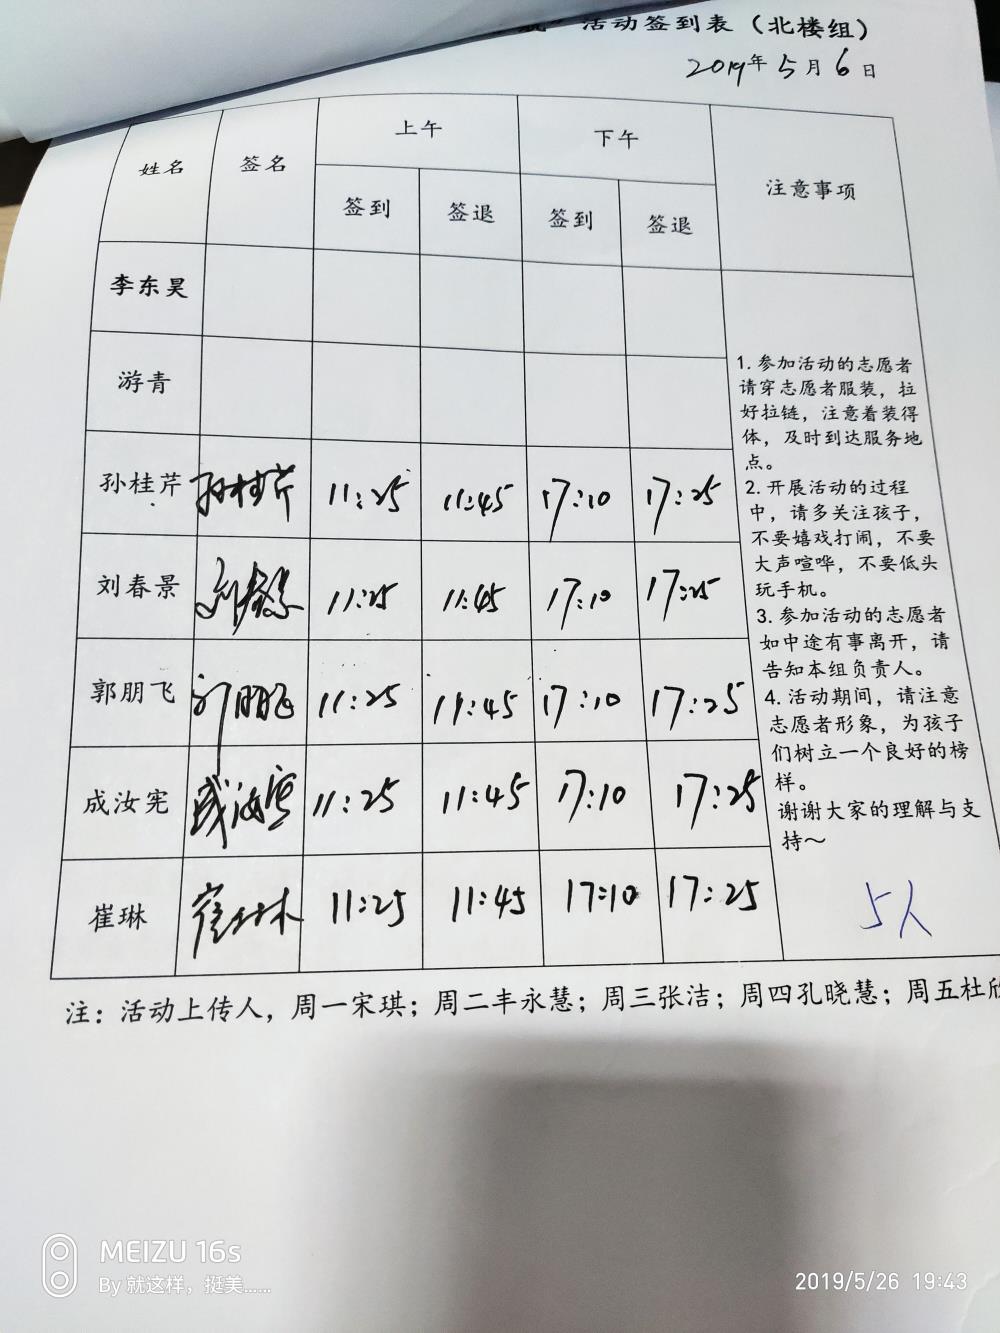 活动签到表（北楼组）
2019年5月6日
姓名 签名 上午 下午 注意事项
签到 签退 签到 签退
李东昊
游青
孙桂芹 孙桂芹 11:25 11:45 17:10 17:25
刘春景 刘春景 11:25 11:45 17:10 17:25
郭朋飞 郭朋飞 11:25 11:45 17:10 17:25
成汝宪 成汝宪 11:25 11:45 17:10 17:25
崔琳 崔琳 11:25 11:45 17:10 17:25
1. 参加活动的志愿者
请穿志愿者服装，拉
好拉链，注意着装得
体，及时到达服务地
点。
2. 开展活动的过程
中，请多关注孩子，
不要嬉戏打闹，不要
大声喧哗，不要低头
玩手机。
3. 参加活动的志愿者
如中途有事离开，请
告知本组负责人。
4. 活动期间，请注意
志愿者形象，为孩子
们树立一个良好的榜
样。
谢谢大家的理解与支
持～
5人
注：活动上传人，周一宋琪；周二丰永慧；周三张洁；周四孔晓慧；周五杜欣
MEIZU 16s
By 就这样，挺美......
2019/5/26 19:43